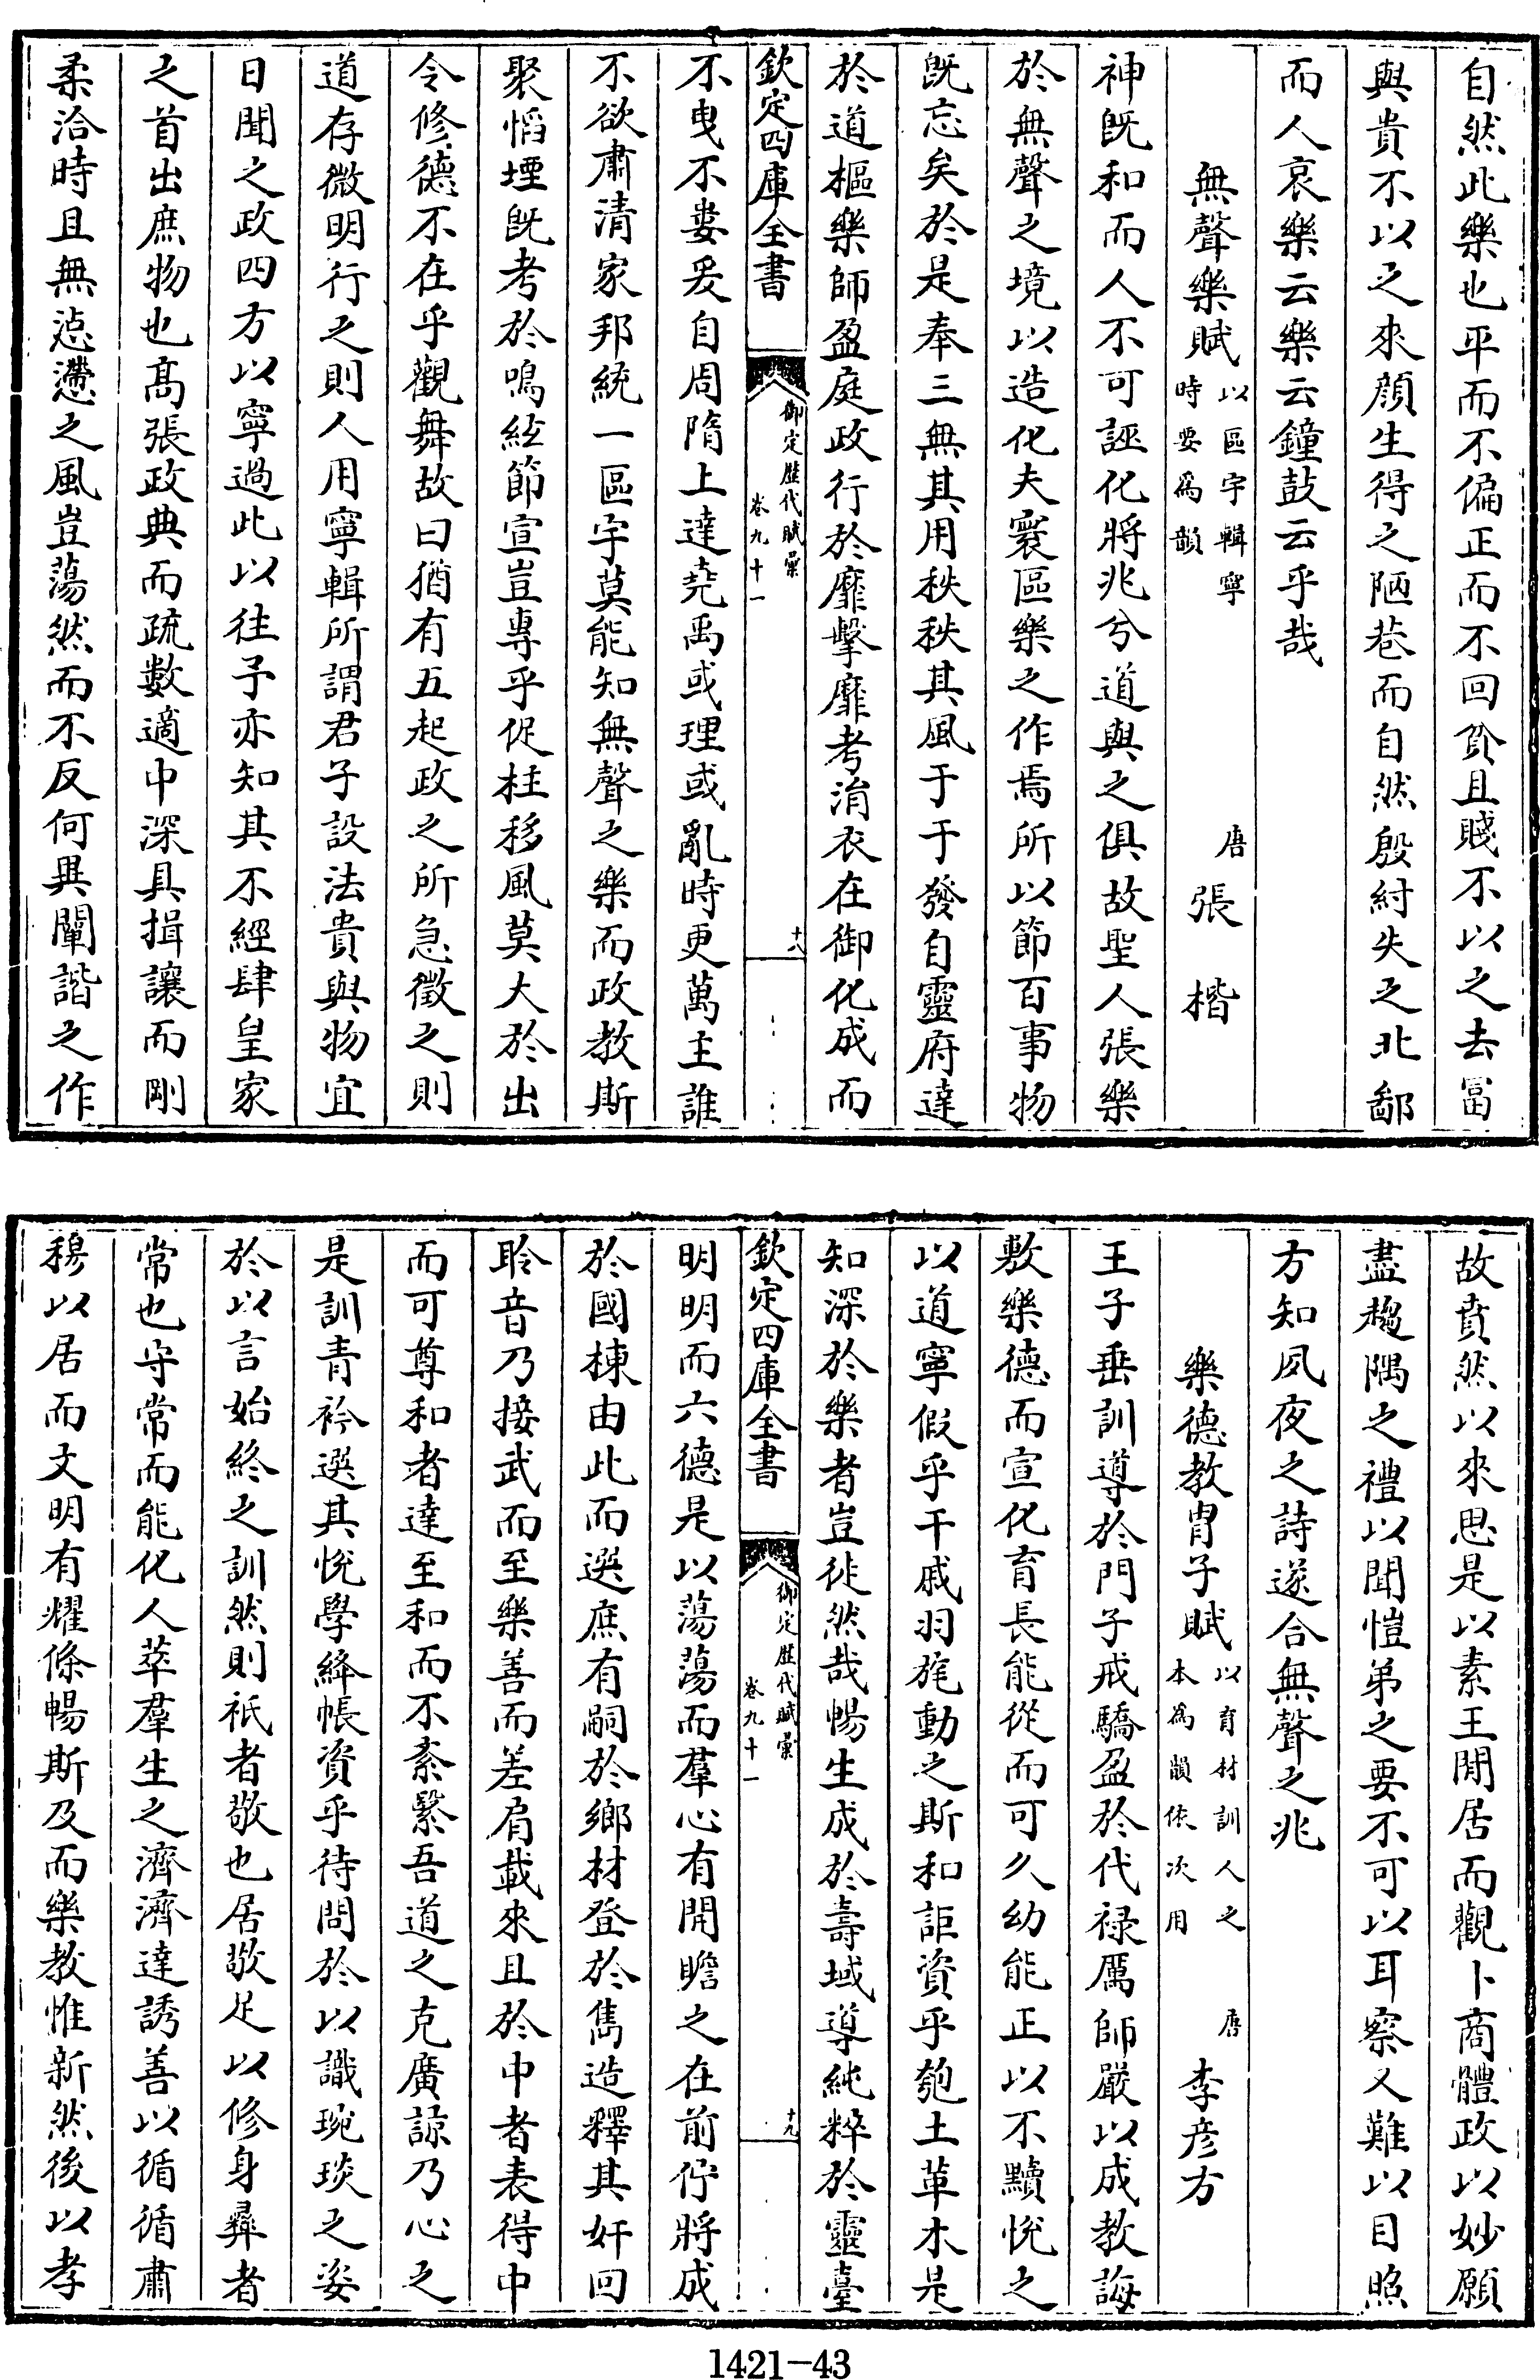 自然此樂也平而不偏正而不回貧且賤不以之去富
與貴不以之來顔生得之陋巷而自然殷紂失之北鄙
而人哀樂云樂云鐘鼓云乎哉
無聲樂賦以區宇輯寧時要為韻 唐 張楷
神旣和而人不可誣化將兆兮道與之俱故聖人張樂
於無聲之境以造化夫寰區樂之作焉所以節百事物
旣忘矣於是奉三無其用秩秩其風于于發自靈府達
於道樞樂師盈庭政行於靡擊靡考湇衣在御化成而
欽定四庫全書 御定歷代賦彙 卷九十一 十八
不曳不婁爰自周隋上達堯禹或理或亂時更萬主誰
不欲肅清家邦統一區宇莫能知無聲之樂而政教斯
聚慆堙旣考於鳴絃節宣豈專乎促柱移風莫大於出
令修德不在乎觀舞故曰猶有五起政之所急徵之則
道存微明行之則人用寧輯所謂君子設法貴與物宜
日聞之政四方以寧過此以往予亦知其不經肆皇家
之首出庶物也高張政典而疏數適中深具揖讓而剛
柔洽時且無惉懘之風豈蕩然而不反何異闡諧之作
故賁然以來思是以素王閒居而觀卜商體政以妙願
盡趨隅之禮以聞愷弟之要不可以耳察又難以目照
方知夙夜之詩遂合無聲之兆
樂德教胄子賦以育材訓人之本為韻依次用 唐 李彦方
王子垂訓導於門子戒驕盈於代禄厲師嚴以成教誨
敷樂德而宣化育長能從而可久幼能正以不黷悅之
以道寧假乎干戚羽旄動之斯和詎資乎匏土革木是
知深於樂者豈徒然哉暢生成於壽域導純粹於靈臺
欽定四庫全書 御定歷代賦彙 卷九十一 十九
明明而六德是以蕩蕩而羣心有開瞻之在前佇將成
於國棟由此而選庶有嗣於鄉材登於雋造釋其奸回
聆音乃接武而至樂善而差肩載來且於中者表得中
而可尊和者達至和而不紊繄吾道之克廣諒乃心之
是訓青衿選其悅學絳帳資乎待問於以識琬琰之姿
於以言始終之訓然則祇者敬也居敬足以修身彝者
常也守常而能化人萃羣生之濟濟達誘善以循循肅
穆以居而文明有燿條暢斯及而樂教惟新然後以孝
1421-43